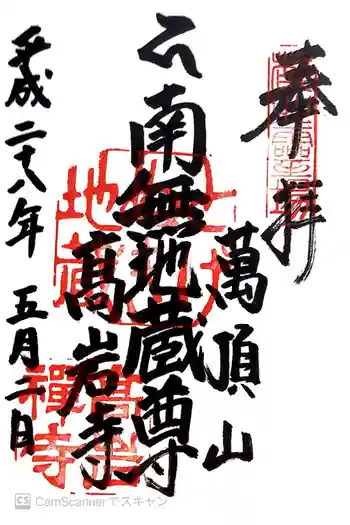 奉拝
萬頂山
南無地蔵尊
高岩寺
平成二十八年 五月二日
禅寺
CamScannerでスキャン